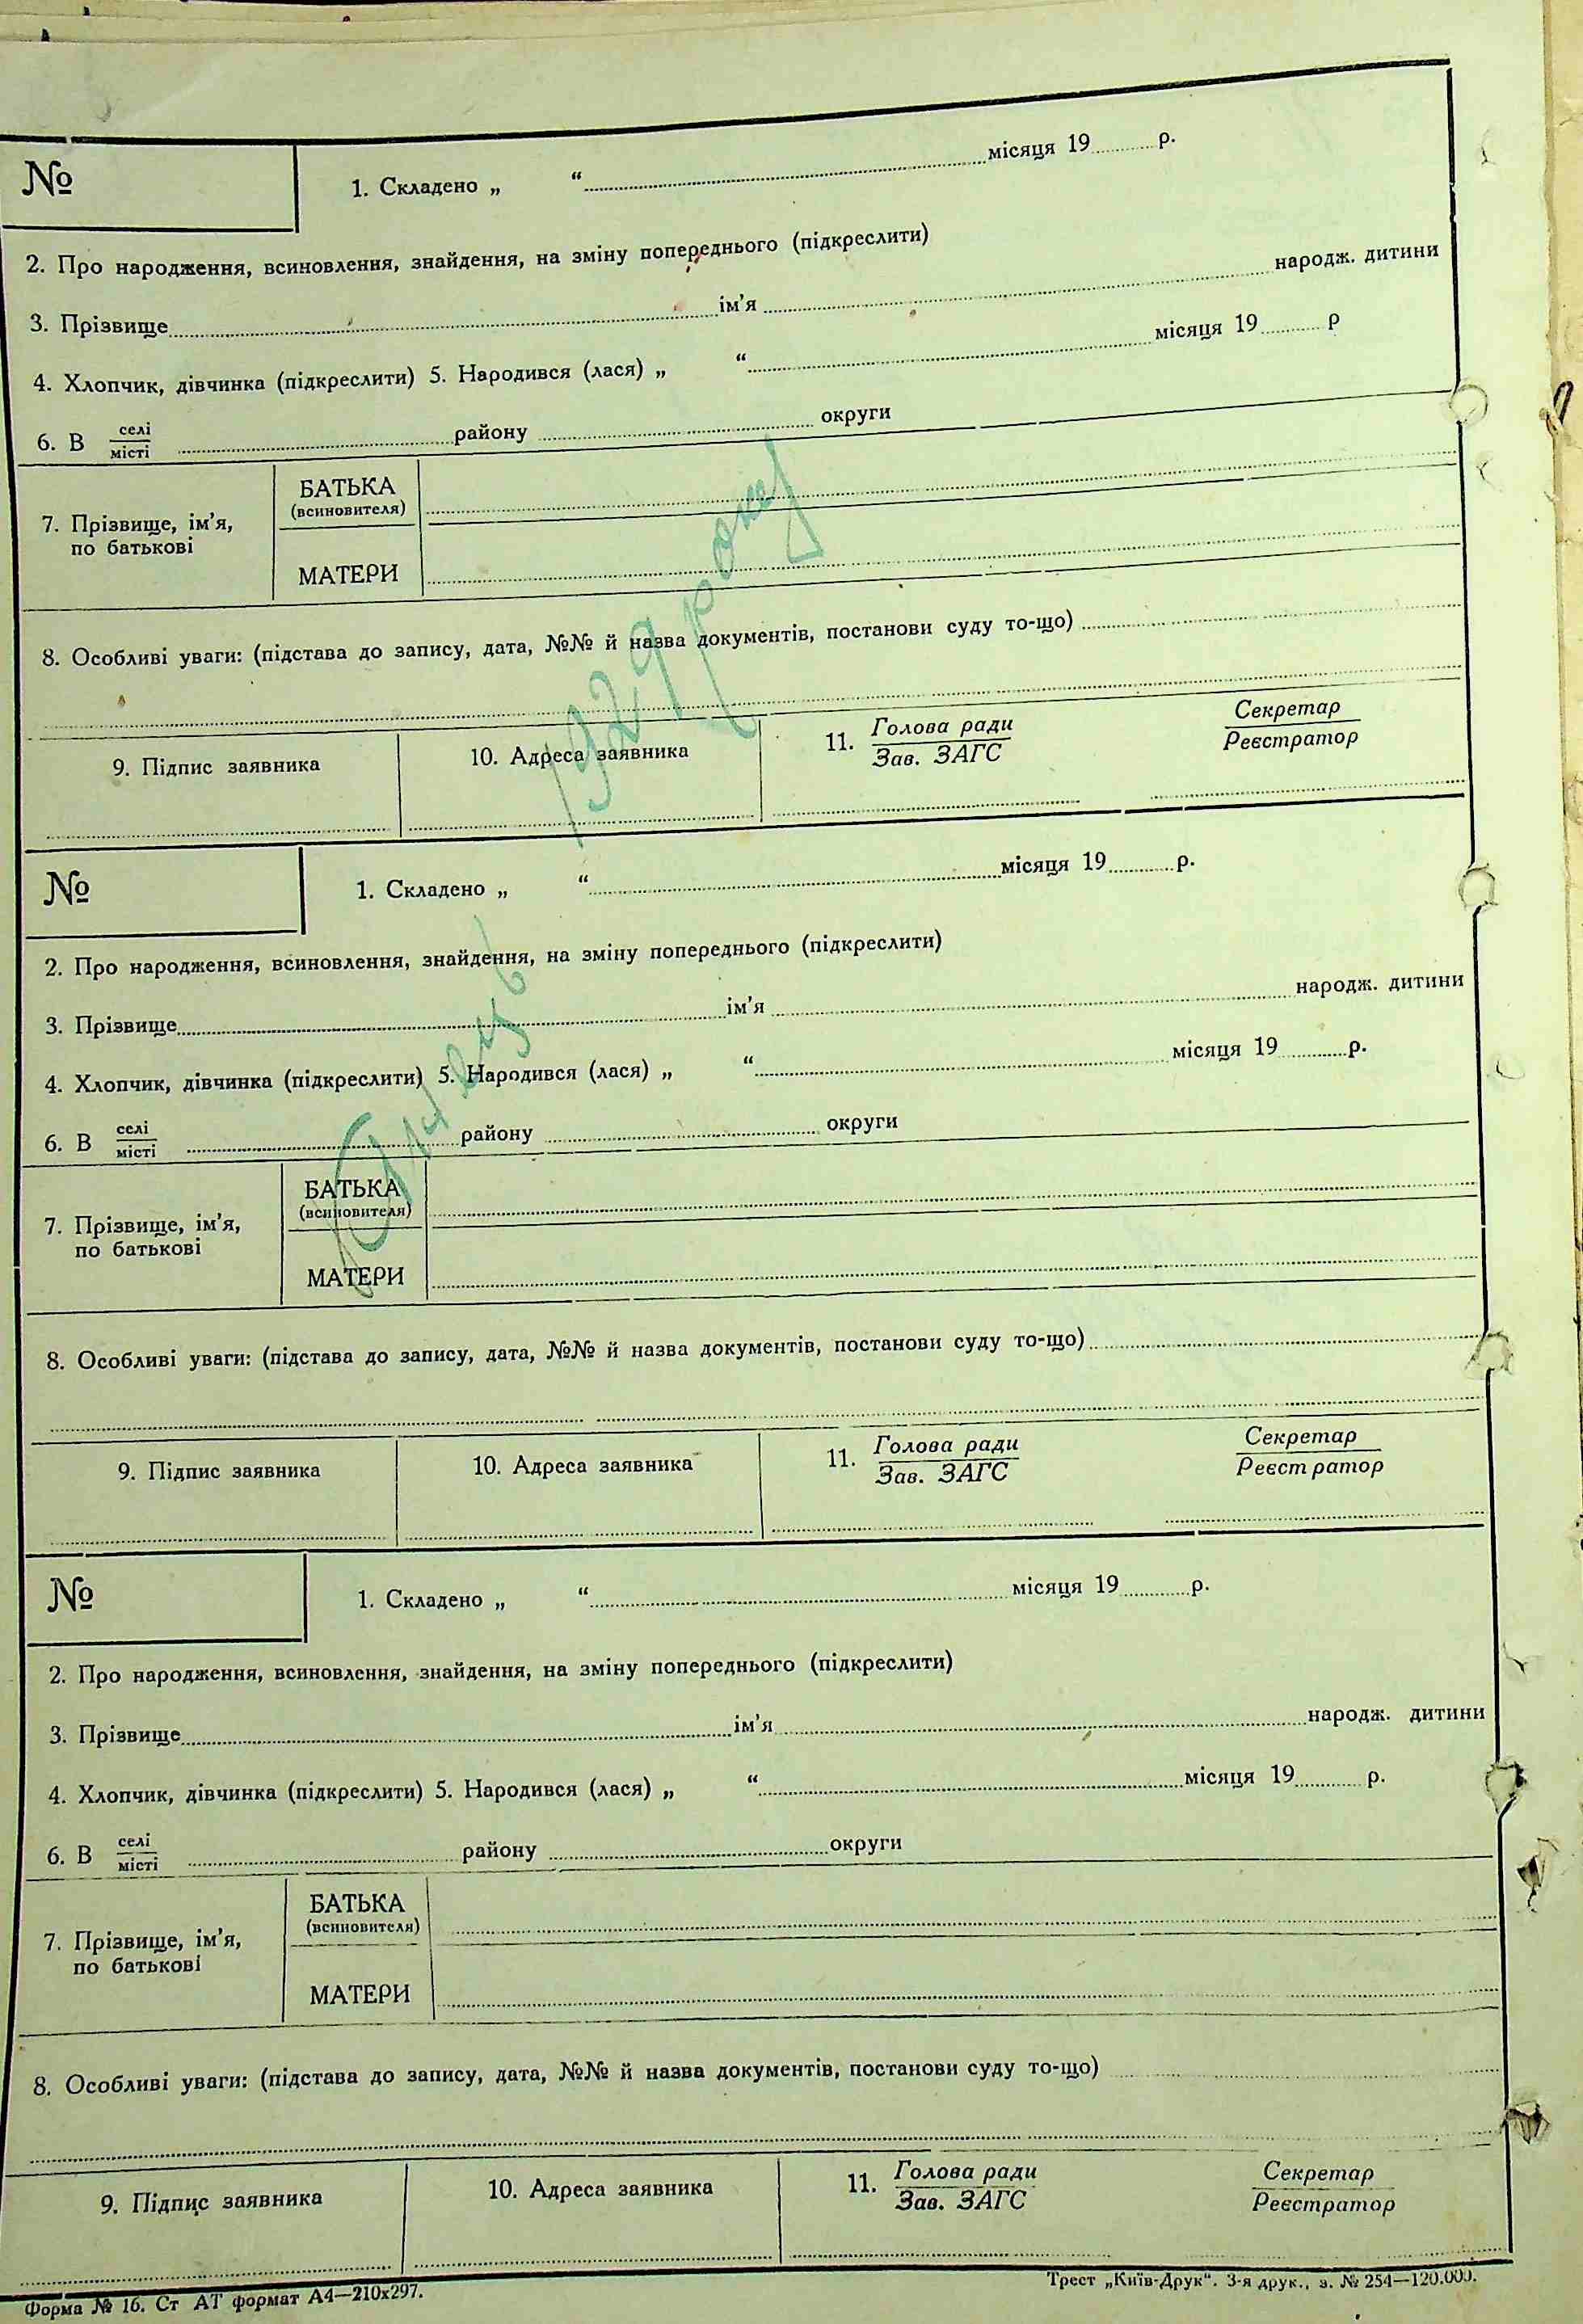 №
1. Складено „ “ місяця 19 р.
2. Про народження, всиновлення, знайдення, на зміну попереднього (підкреслити)
3. Прізвище ім’я народж. дитини
4. Хлопчик, дівчинка (підкреслити) 5. Народився (лася) „ “ місяця 19 р
6. В селі місті району округи
7. Прізвище, ім’я, по батькові
БАТЬКА
(всиновителя)
МАТЕРИ
8. Особливі уваги: (підстава до запису, дата, №№ й назва документів, постанови суду то-що)
9. Підпис заявника
10. Адреса заявника
11. Голова ради
Зав. ЗАГС
Секретар
Реєстратор
1929 року
№
1. Складено „ “ місяця 19 р.
2. Про народження, всиновлення, знайдення, на зміну попереднього (підкреслити)
3. Прізвище ім’я народж. дитини
4. Хлопчик, дівчинка (підкреслити) 5. Народився (лася) „ “ місяця 19 р.
6. В селі місті району округи
7. Прізвище, ім’я, по батькові
БАТЬКА
(всиновителя)
МАТЕРИ
8. Особливі уваги: (підстава до запису, дата, №№ й назва документів, постанови суду то-що)
9. Підпис заявника
10. Адреса заявника
11. Голова ради
Зав. ЗАГС
Секретар
Реєстратор
№
1. Складено „ “ місяця 19 р.
2. Про народження, всиновлення, знайдення, на зміну попереднього (підкреслити)
3. Прізвище ім’я народж. дитини
4. Хлопчик, дівчинка (підкреслити) 5. Народився (лася) „ “ місяця 19 р.
6. В селі місті району округи
7. Прізвище, ім’я, по батькові
БАТЬКА
(всиновителя)
МАТЕРИ
8. Особливі уваги: (підстава до запису, дата, №№ й назва документів, постанови суду то-що)
9. Підпис заявника
10. Адреса заявника
11. Голова ради
Зав. ЗАГС
Секретар
Реєстратор
Форма № 16. Ст АТ формат А4—210х297.
Трест „Київ-Друк“. 3-я друк., з. № 254—120.000.